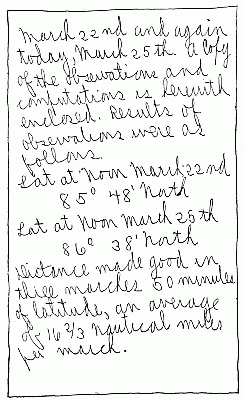 March 22nd and again
today, March 25th. A copy
of the observations and
computations is herewith
enclosed. Results of
observations were as
follows.
Lat at Noon March 22nd
85° 48' North
Lat at Noon March 25th
86° 38' North
Distance made good in
three marches 50 minutes
of latitude, an average
of 16 2/3 nautical miles
per march.